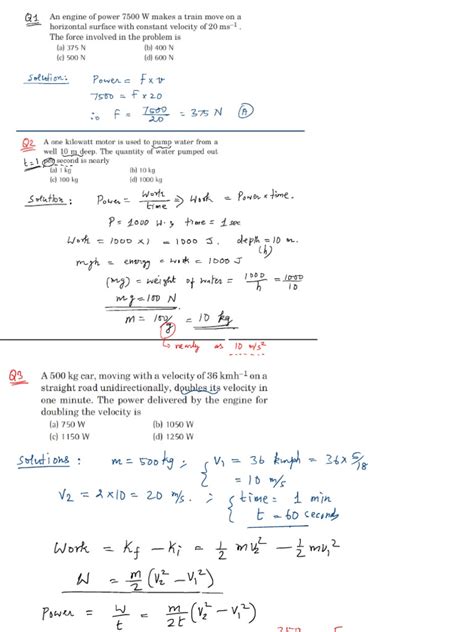 Q1 An engine of power 7500 W makes a train move on a
horizontal surface with constant velocity of 20 ms⁻¹.
The force involved in the problem is
(a) 375 N (b) 400 N
(c) 500 N (d) 600 N
Solution: Power = F x v
7500 = F x 20
∴ F = 7500/20 = 375 N (A)
Q2 A one kilowatt motor is used to pump water from a
well 10 m deep. The quantity of water pumped out
t=1 per second is nearly
(a) 1 kg (b) 10 kg
(c) 100 kg (d) 1000 kg
Solution: Power = Work/time => Work = Power x time.
P = 1000 W. & time = 1 sec
Work = 1000 x 1 = 1000 J. depth = 10 m.
(h)
mgh = energy = work = 1000 J.
(mg) = weight of water = 1000/h = 1000/10
mg = 100 N
m = 100/g = 10 kg
↳ nearly as 10 m/s²
Q3 A 500 kg car, moving with a velocity of 36 kmh⁻¹ on a
straight road unidirectionally, doubles its velocity in
one minute. The power delivered by the engine for
doubling the velocity is
(a) 750 W (b) 1050 W
(c) 1150 W (d) 1250 W
Solutions: m = 500 kg; V₁ = 36 kmph = 36 x 5/18
= 10 m/s
V₂ = 2 x 10 = 20 m/s. ; time = 1 min
t = 60 seconds
Work = Kf - Ki = 1/2 mv₂² - 1/2 mv₁²
W = m/2 (V₂² - V₁²)
Power = W/t = m/2t (V₂² - V₁²)